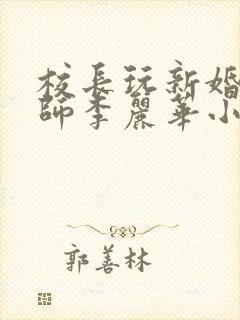 校長玩新婚
師李麗華小
郭善林